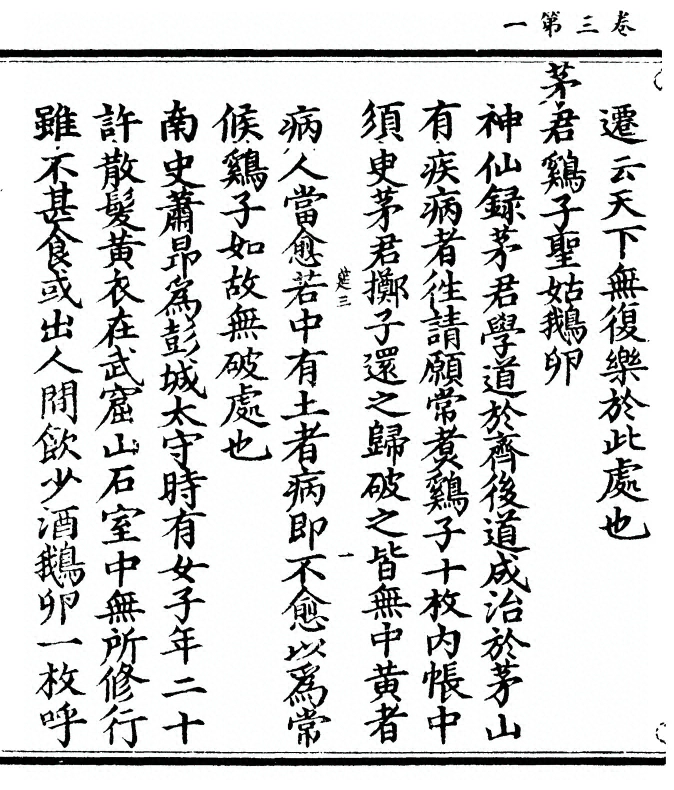 卷三第一
遷云天下無復樂於此處也
茅君鷄子聖姑鵝卵
神仙録茅君學道於齊後道成治於茅山
有疾病者徃請願常煑鷄子十枚内帳中
須臾茅君擲子還之歸破之皆無中黄者
病人當愈若中有土者病即不愈以爲常
候鷄子如故無破處也
南史蕭昂爲彭城太守時有女子年二十
許散髮黄衣在武窟山石室中無所修行
雖不甚食或出人間飲少酒鵝卵一枚呼